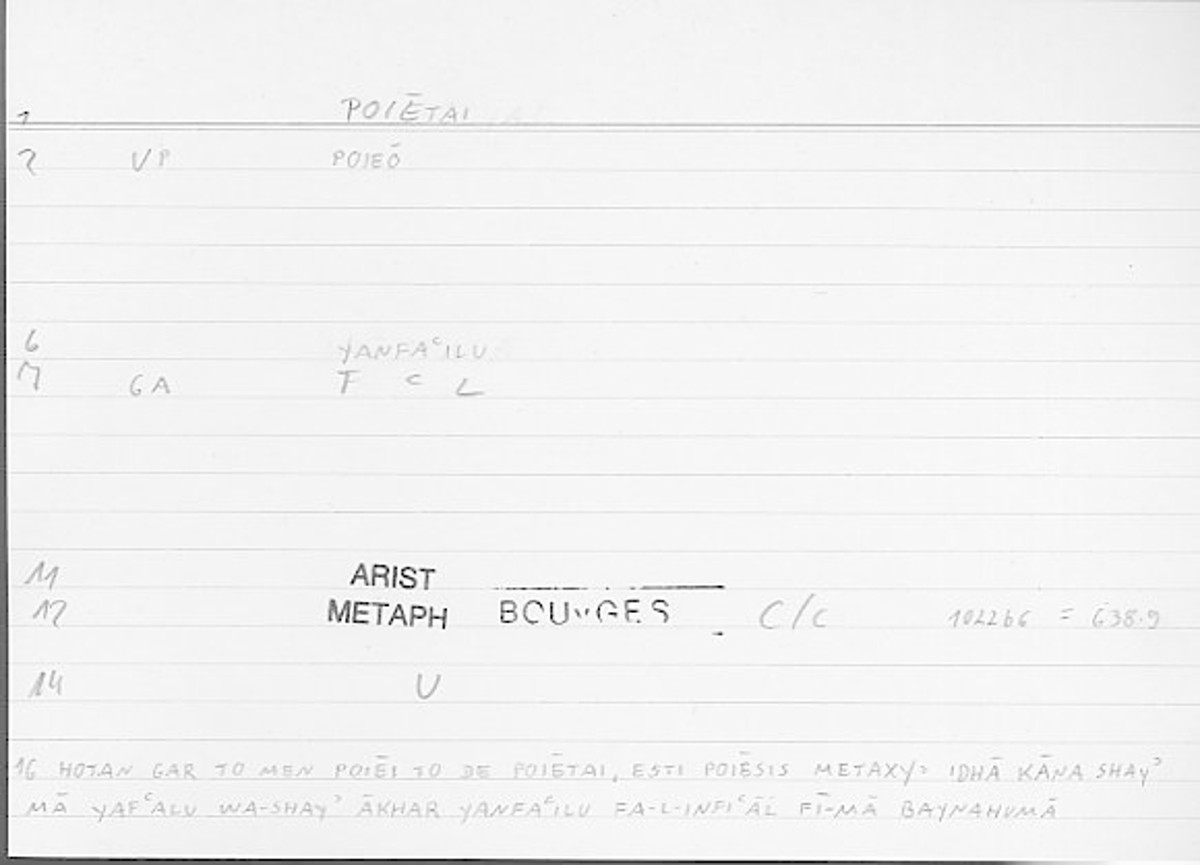 1 POIĒTAI
2 VP POIEŌ
6 YANFAᶜILU
7 GA F ᶜ L
11 ARIST
12 METAPH BOUYGES C/C 1022b6 = 638.9
14 U
16 HOTAN GAR TO MEN POIĒI TO DE POIĒTAI, ESTI POIĒSIS METAXY: IDHĀ KĀNA SHAYʾ
MĀ YAFᶜALU WA-SHAYʾ ĀKHAR YANFAᶜILU FA-L-INFIᶜĀL FĪ-MĀ BAYNAHUMĀ